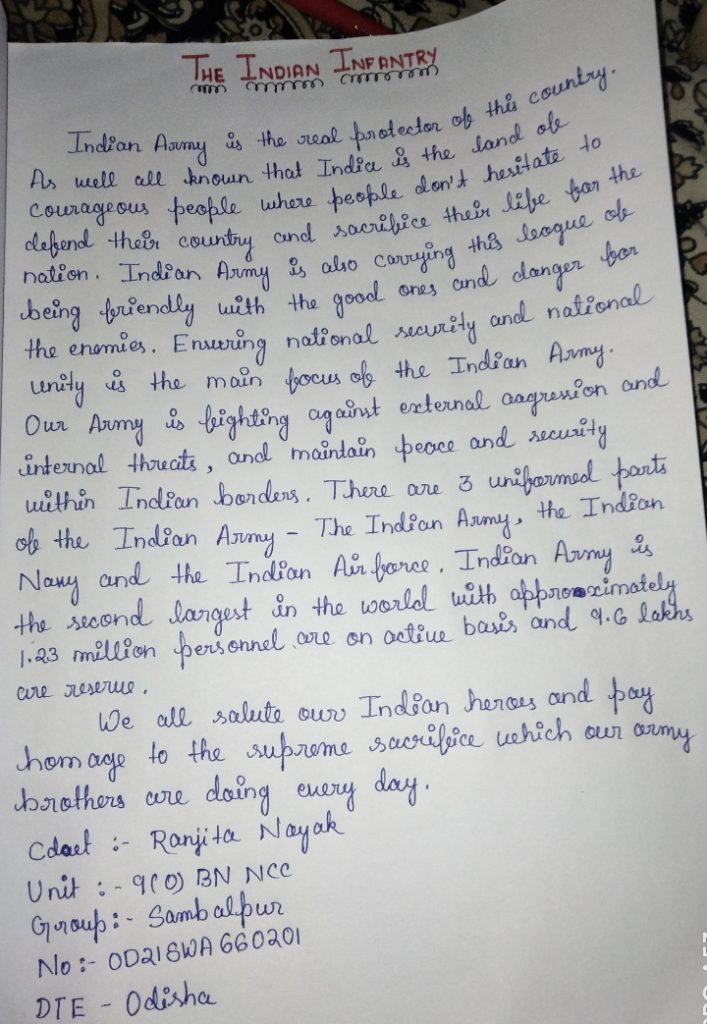 THE INDIAN INFANTRY
Indian Army is the real protector of this country.
As well all known that India is the land of
courageous people where people don't hesitate to
defend their country and sacrifice their life for the
nation. Indian Army is also carrying this league of
being friendly with the good ones and danger for
the enemies. Ensuring national security and national
unity is the main focus of the Indian Army.
Our Army is fighting against external aagression and
internal threats, and maintain peace and security
within Indian borders. There are 3 uniformed parts
of the Indian Army - The Indian Army, the Indian
Navy and the Indian Air force. Indian Army is
the second largest in the world with approximately
1.23 million personnel are on active basis and 9.6 lakhs
are reserve.
We all salute our Indian heroes and pay
homage to the supreme sacrifice which our army
brothers are doing every day.
Cdaet :- Ranjita Nayak
Unit :- 9(O) BN NCC
Group :- Sambalpur
No :- OD21SWA660201
DTE - Odisha